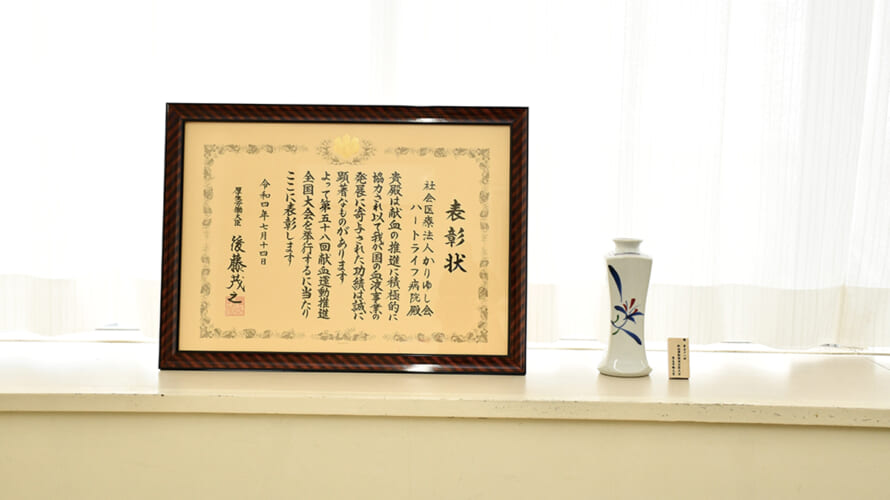 表彰状
社会医療法人かりゆし会
ハートライフ病院殿
貴殿は献血の推進に積極的に
協力され以て我が国の血液事業の
発展に寄与された功績は誠に
顕著なものがあります
よって第五十八回献血運動推進
全国大会を挙行するに当たり
ここに表彰します
令和四年七月十四日
厚生労働大臣 後藤茂之